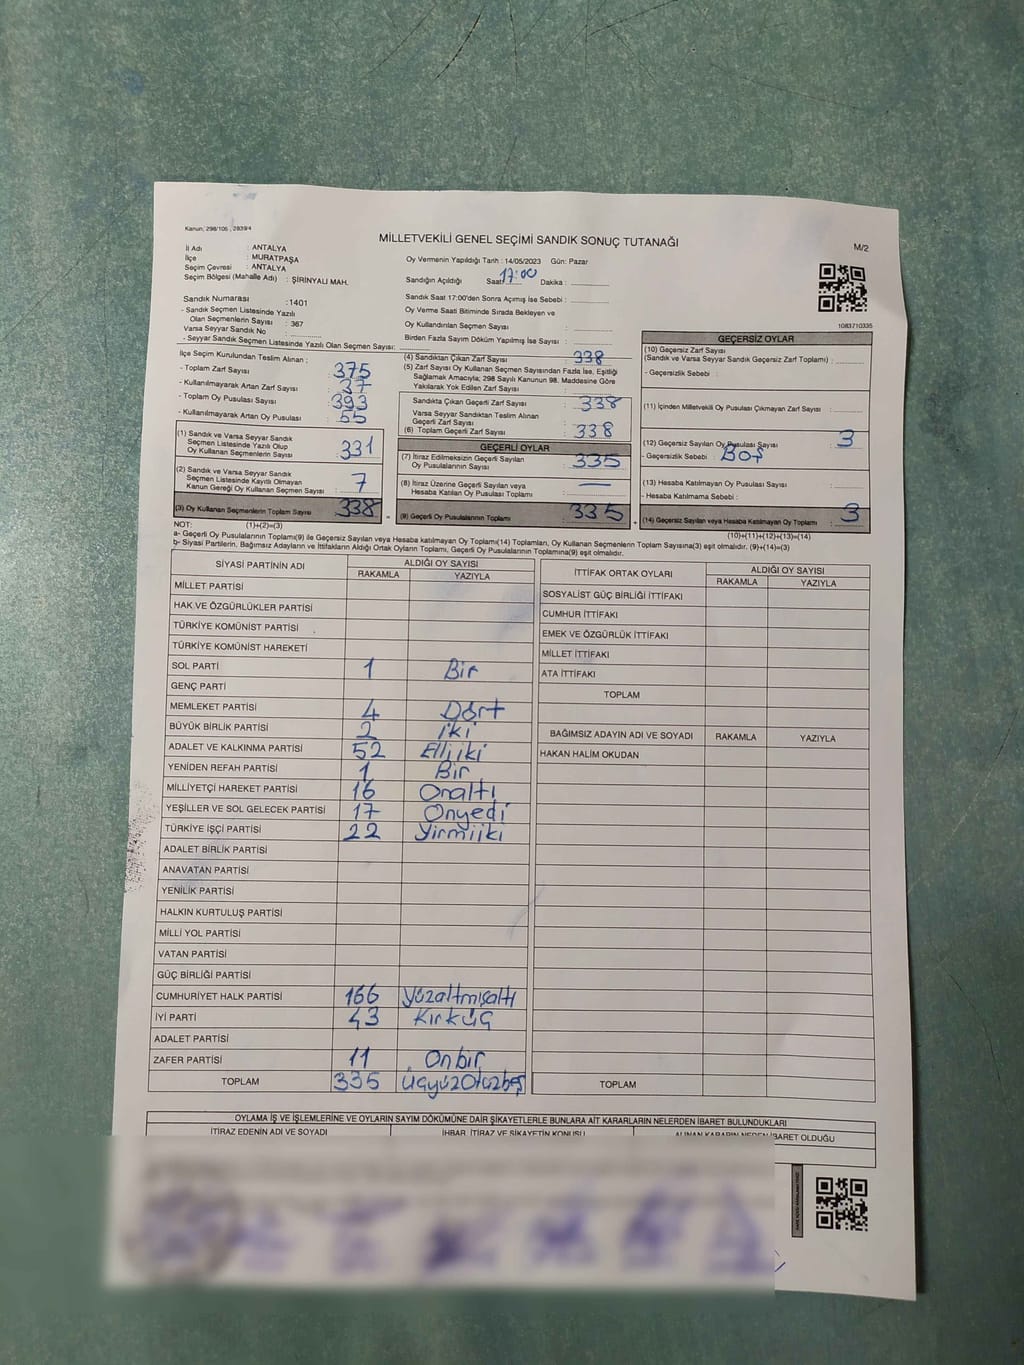 Kanun, 298/105 , 2839/4
MİLLETVEKİLİ GENEL SEÇİMİ SANDIK SONUÇ TUTANAĞI
M/2
İl Adı : ANTALYA
İlçe : MURATPAŞA
Seçim Çevresi : ANTALYA
Seçim Bölgesi (Mahalle Adı) : ŞİRİNYALI MAH.
Oy Vermenin Yapıldığı Tarih : 14/05/2023 Gün: Pazar
Sandığın Açıldığı Saat 17:00 Dakika :
Sandık Numarası : 1401
- Sandık Seçmen Listesinde Yazılı
Olan Seçmenlerin Sayısı : 367
Varsa Seyyar Sandık No :
- Seyyar Sandık Listesinde Yazılı Olan Seçmen Sayısı:
Sandık Saat 17:00'den Sonra Açımış İse Sebebi :
Oy Verme Saati Bitiminde Sırada Bekleyen ve
Oy Kullandırılan Seçmen Sayısı :
Birden Fazla Sayım Döküm Yapılmış İse Sayısı :
1083710335
İlçe Seçim Kurulundan Teslim Alınan :
- Toplam Zarf Sayısı : 375
- Kullanılmayarak Artan Zarf Sayısı : 37
- Toplam Oy Pusulası Sayısı : 393
- Kullanılmayarak Artan Oy Pusulası : 55
(1) Sandık ve Varsa Seyyar Sandık
Seçmen Listesinde Yazılı Olup
Oy Kullanan Seçmenlerin Sayısı : 331
(2) Sandık ve Varsa Seyyar Sandık
Seçmen Listesinde Kayıtlı Olmayan
Kanun Gereği Oy Kullanan Seçmen Sayısı : 7
(3) Oy Kullanan Seçmenlerin Toplam Sayısı : 338
(4) Sandıktan Çıkan Zarf Sayısı : 338
(5) Zarf Sayısı Oy Kullanan Seçmen Sayısından Fazla İse, Eşitliği
Sağlamak Amacıyla; 298 Sayılı Kanunun 98. Maddesine Göre
Yakılarak Yok Edilen Zarf Sayısı :
Sandıkta Çıkan Geçerli Zarf Sayısı : 338
Varsa Seyyar Sandıktan Teslim Alınan
Geçerli Zarf Sayısı :
(6) Toplam Geçerli Zarf Sayısı : 338
GEÇERLİ OYLAR
(7) İtiraz Edilmeksizin Geçerli Sayılan
Oy Pusulalarının Sayısı : 335
(8) İtiraz Üzerine Geçerli Sayılan veya
Hesaba Katılan Oy Pusulası Toplamı : —
(9) Geçerli Oy Pusulalarının Toplamı : 335
GEÇERSİZ OYLAR
(10) Geçersiz Zarf Sayısı
(Sandık ve Varsa Seyyar Sandık Geçersiz Zarf Toplamı) :
- Geçersizlik Sebebi :
(11) İçinden Milletvekili Oy Pusulası Çıkmayan Zarf Sayısı :
(12) Geçersiz Sayılan Oy Pusulası Sayısı : 3
- Geçersizlik Sebebi : Boş
(13) Hesaba Katılmayan Oy Pusulası Sayısı :
- Hesaba Katılmama Sebebi :
(14) Geçersiz Sayılan veya Hesaba Katılmayan Oy Toplamı : 3
NOT: (1)+(2)=(3)
(10)+(11)+(12)+(13)=(14)
a- Geçerli Oy Pusulalarının Toplamı(9) ile Geçersiz Sayılan veya Hesaba Katılmayan Oy Toplamı(14) Toplamları, Oy Kullanan Seçmenlerin Toplam Sayısına(3) eşit olmalıdır. (9)+(14)=(3)
b- Siyasi Partilerin, Bağımsız Adayların ve İttifakların Aldığı Ortak Oyların Toplamı, Geçerli Oy Pusulalarının Toplamına(9) eşit olmalıdır.
SİYASİ PARTİNİN ADI ALDIĞI OY SAYISI
RAKAMLA YAZIYLA
MİLLET PARTİSİ
HAK VE ÖZGÜRLÜKLER PARTİSİ
TÜRKİYE KOMÜNİST PARTİSİ
TÜRKİYE KOMÜNİST HAREKETİ
SOL PARTİ 1 Bir
GENÇ PARTİ
MEMLEKET PARTİSİ 4 Dört
BÜYÜK BİRLİK PARTİSİ 2 iki
ADALET VE KALKINMA PARTİSİ 52 Elliiki
YENİDEN REFAH PARTİSİ 1 Bir
MİLLİYETÇİ HAREKET PARTİSİ 16 Onaltı
YEŞİLLER VE SOL GELECEK PARTİSİ 17 Onyedi
TÜRKİYE İŞÇİ PARTİSİ 22 Yirmiiki
ADALET BİRLİK PARTİSİ
ANAVATAN PARTİSİ
YENİLİK PARTİSİ
HALKIN KURTULUŞ PARTİSİ
MİLLİ YOL PARTİSİ
VATAN PARTİSİ
GÜÇ BİRLİĞİ PARTİSİ
CUMHURİYET HALK PARTİSİ 166 Yüzaltmışaltı
İYİ PARTİ 43 Kırküç
ADALET PARTİSİ
ZAFER PARTİSİ 11 Onbir
TOPLAM 335 ÜçyüzOtuzbeş
İTTİFAK ORTAK OYLARI ALDIĞI OY SAYISI
RAKAMLA YAZIYLA
SOSYALİST GÜÇ BİRLİĞİ İTTİFAKI
CUMHUR İTTİFAKI
EMEK VE ÖZGÜRLÜK İTTİFAKI
MİLLET İTTİFAKI
ATA İTTİFAKI
TOPLAM
BAĞIMSIZ ADAYIN ADI VE SOYADI RAKAMLA YAZIYLA
HAKAN HALİM OKUDAN
TOPLAM
OYLAMA İŞ VE İŞLEMLERİNE VE OYLARIN SAYIM DÖKÜMÜNE DAİR ŞİKAYETLERLE BUNLARA AİT KARARLARIN NELERDEN İBARET BULUNDUKLARI
İTİRAZ EDENİN ADI VE SOYADI İHBAR, İTİRAZ VE ŞİKAYETİN KONUSU ALINAN KARARIN NEDEN İBARET OLDUĞU